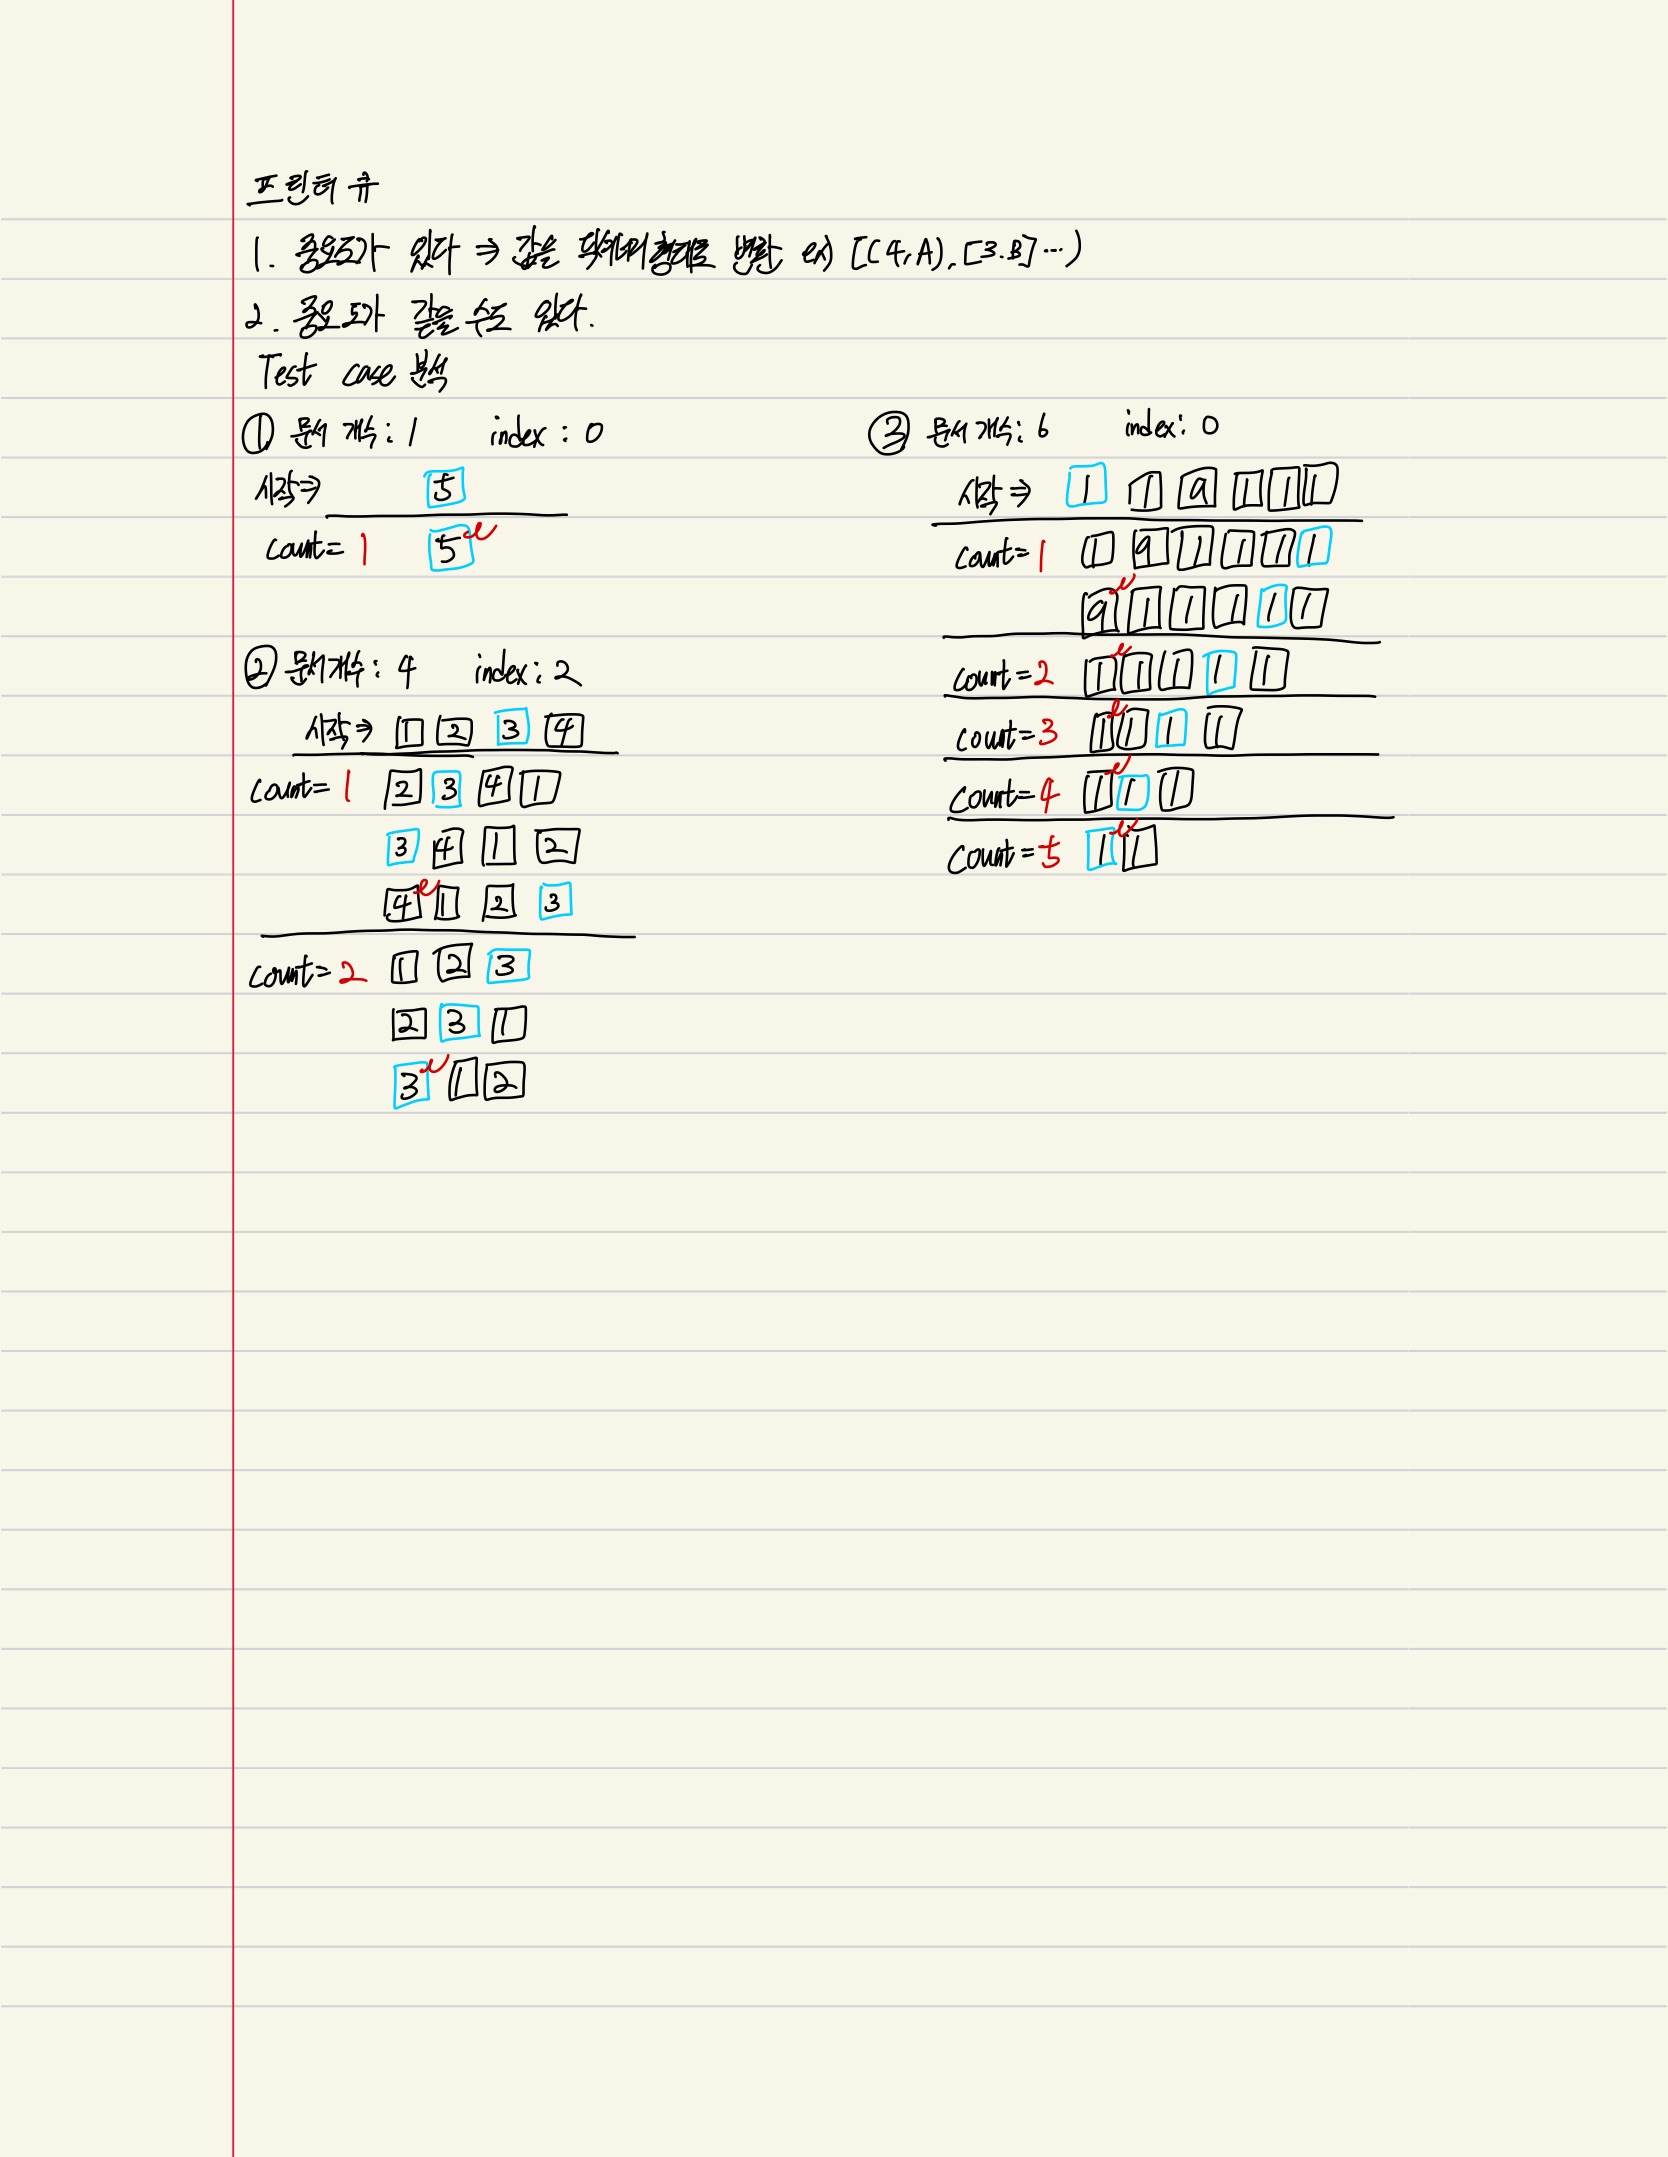 프린터 큐
1. 중요도가 있다 ⇒ 값을 딕셔너리형태로 변환 ex) [(4,A),[3.B]...)
2. 중요도가 같을 수도 있다.
Test case 분석
① 문서 개수: 1 index : 0
시작⇒ 5
count= 1 5
② 문서개수: 4 index: 2
시작⇒ 1 2 3 4
count= 1 2 3 4 1
3 4 1 2
4 1 2 3
count= 2 1 2 3
2 3 1
3 1 2
③ 문서개수: 6 index: 0
시작 ⇒ 1 1 9 1 1 1
count= 1 1 9 1 1 1 1
9 1 1 1 1 1
count= 2 1 1 1 1 1
count= 3 1 1 1 1
count= 4 1 1 1
count= 5 1 1